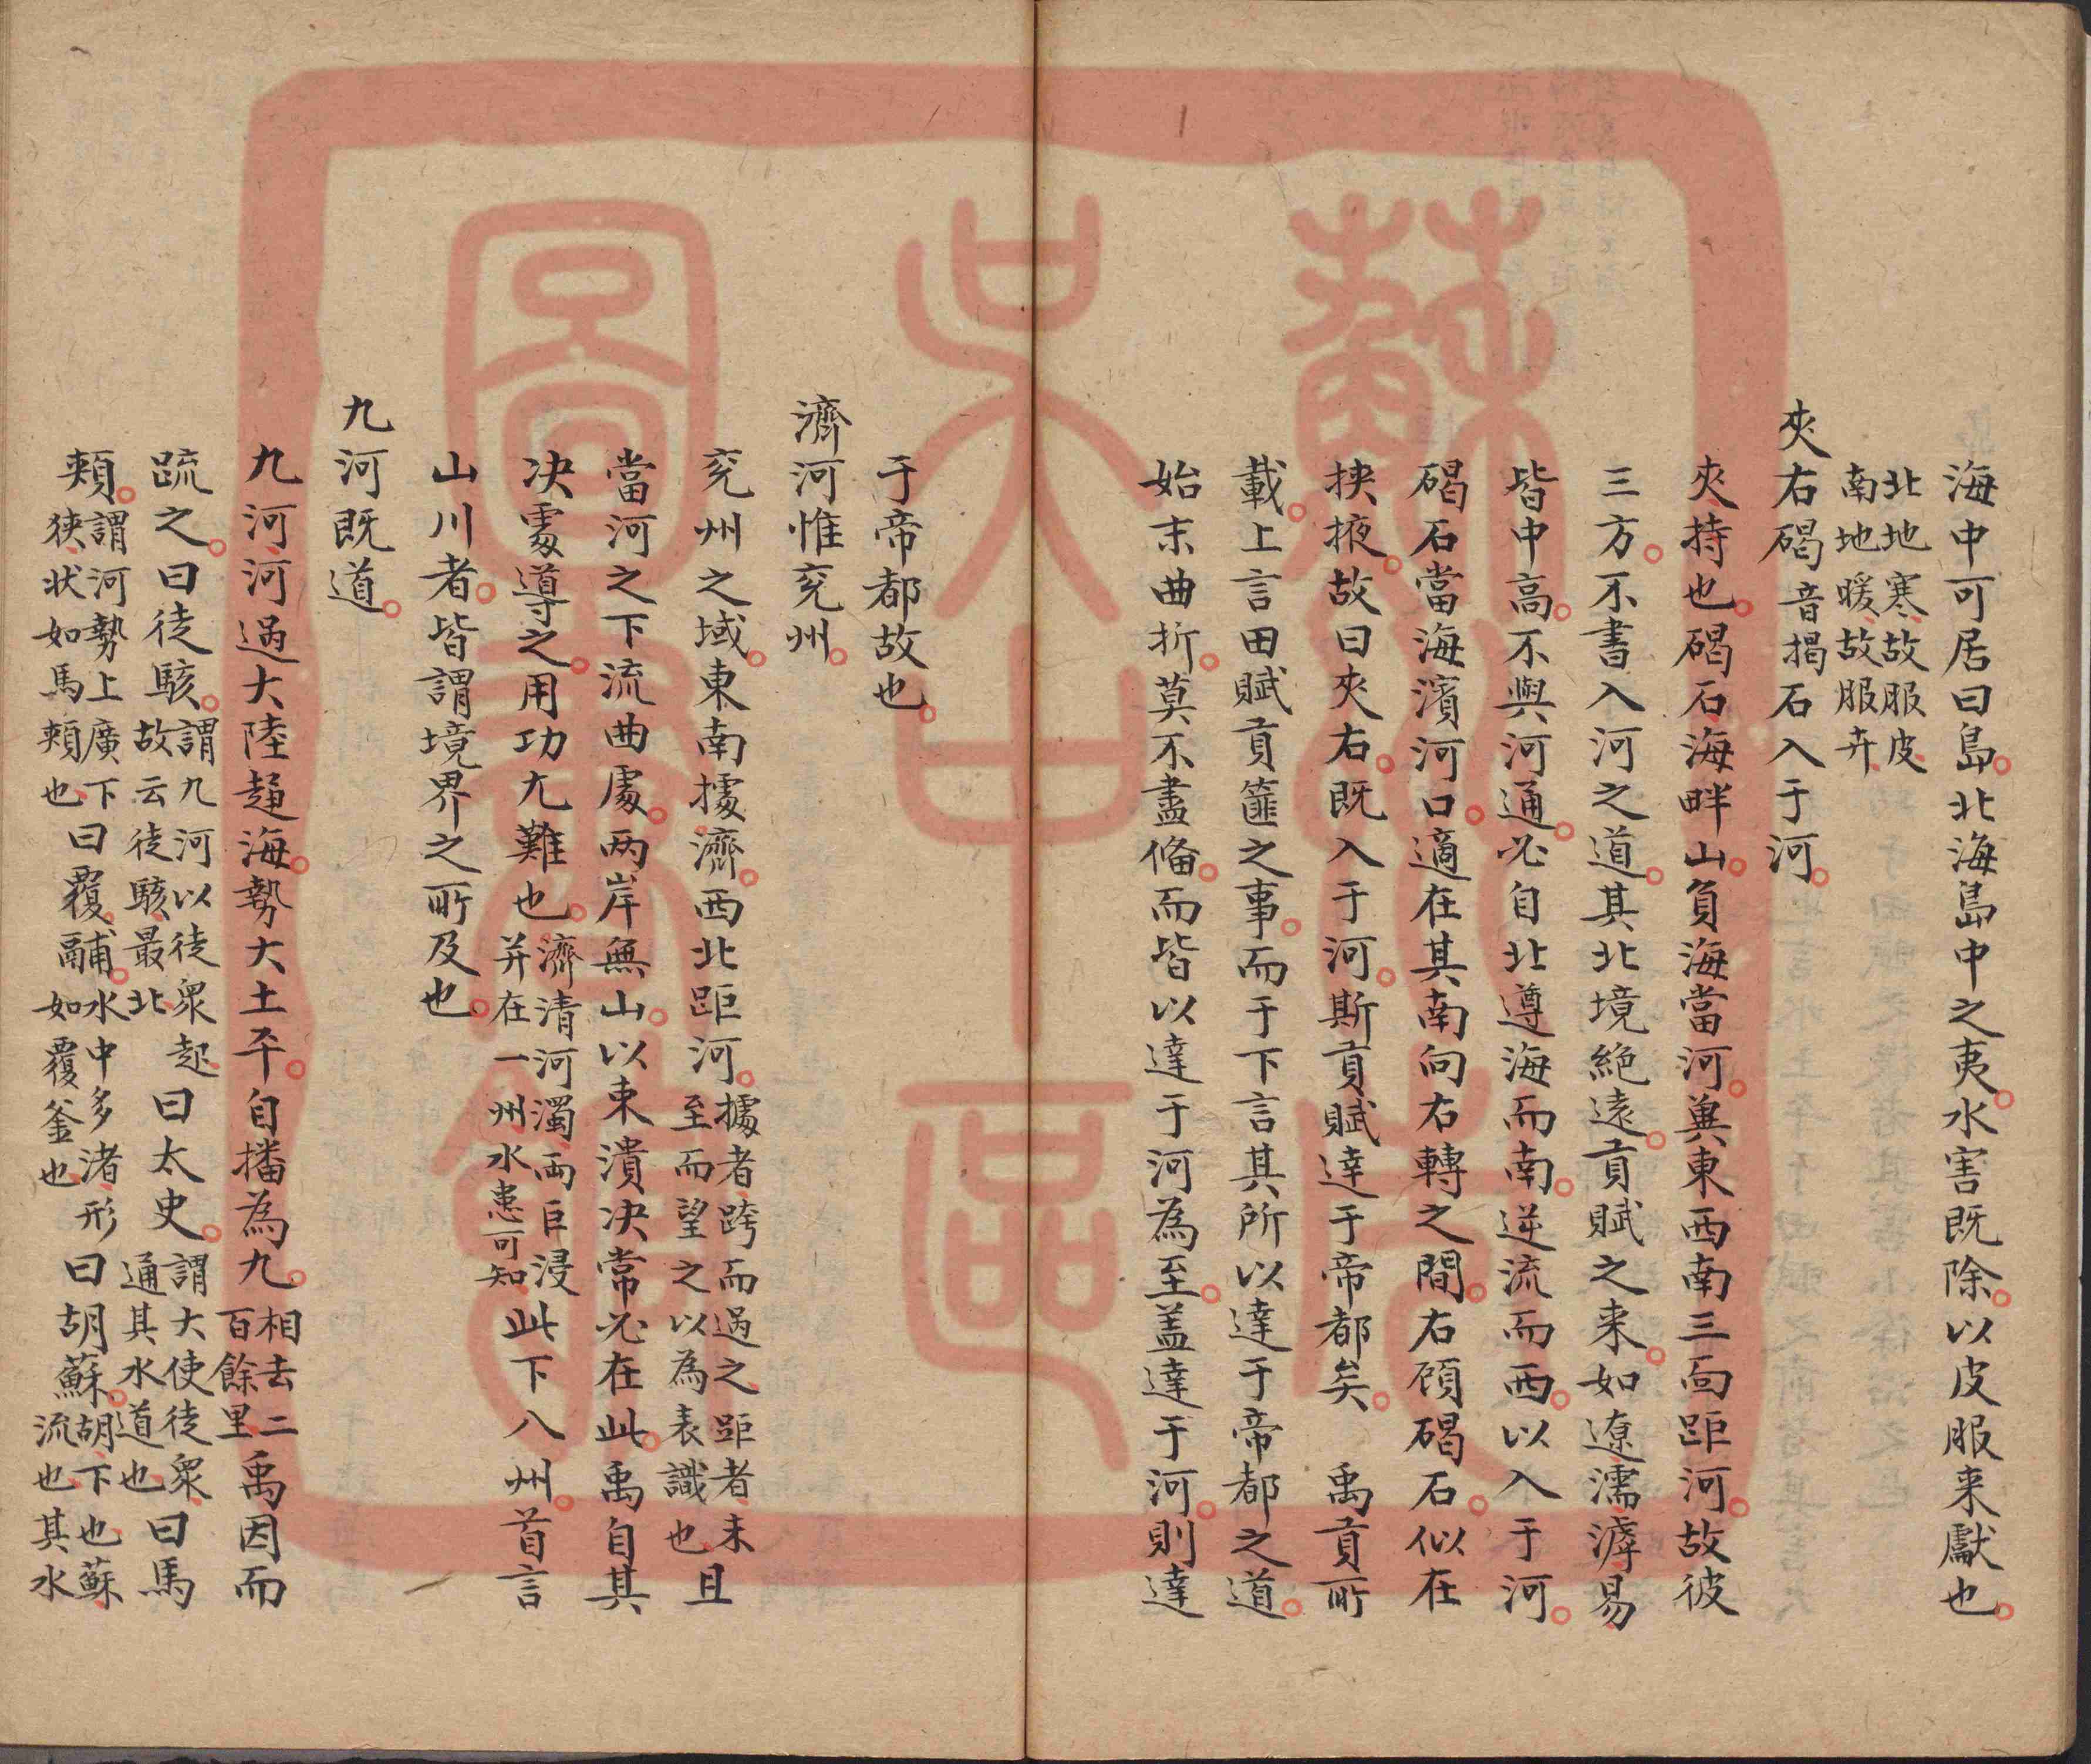 海中可居曰島。北海島中之夷。水害既除。以皮服来獻也。
北地寒、故服皮、
南地暖、故服卉、
夾右碣音揭石入于河。
夾持也。碣石海畔山。負海當河。兾東西南三面距河。故彼
三方。不書入河之道。其北境絶遠。貢賦之来。如遼濡滹易
皆中高。不與河通。必自北遵海而南。逆流而西。以入于河。
碣石當海濱河口。適在其南向右轉之間。右顧碣石。似在
挾掖。故曰夾右。既入于河。斯貢賦達于帝都矣。　禹貢所
載。上言田賦貢篚之事。而于下言其所以達于帝都之道。
始末曲折。莫不盡偹。而皆以達于河為至。盖達于河。則達
于帝都故也。
濟河惟兖州。
兖州之域。東南據濟。西北距河。據者、跨而過之、距者、未
至而望之以為表識也、且
當河之下流曲處。两岸無山。以束潰决常必在此。禹自其
决處導之。用功尢難也。濟清河濁兩巨浸
并在一州水患可知、此下八州。首言
山川者。皆謂境界之所及也。
九河既道。
九河、河過大陸趨海。勢大土平。自播為九。相去二
百餘里、禹因而
疏之。曰徒駭。謂九河以徒衆起、
故云徒駭、最北、曰太史。謂大使徒衆、
通其水道也、曰馬
頰。謂河勢上廣下
狹、状如馬頰也、曰覆鬴。水中多渚、形
如覆釜也、曰胡蘇。胡、下也、蘇、
流也、其水